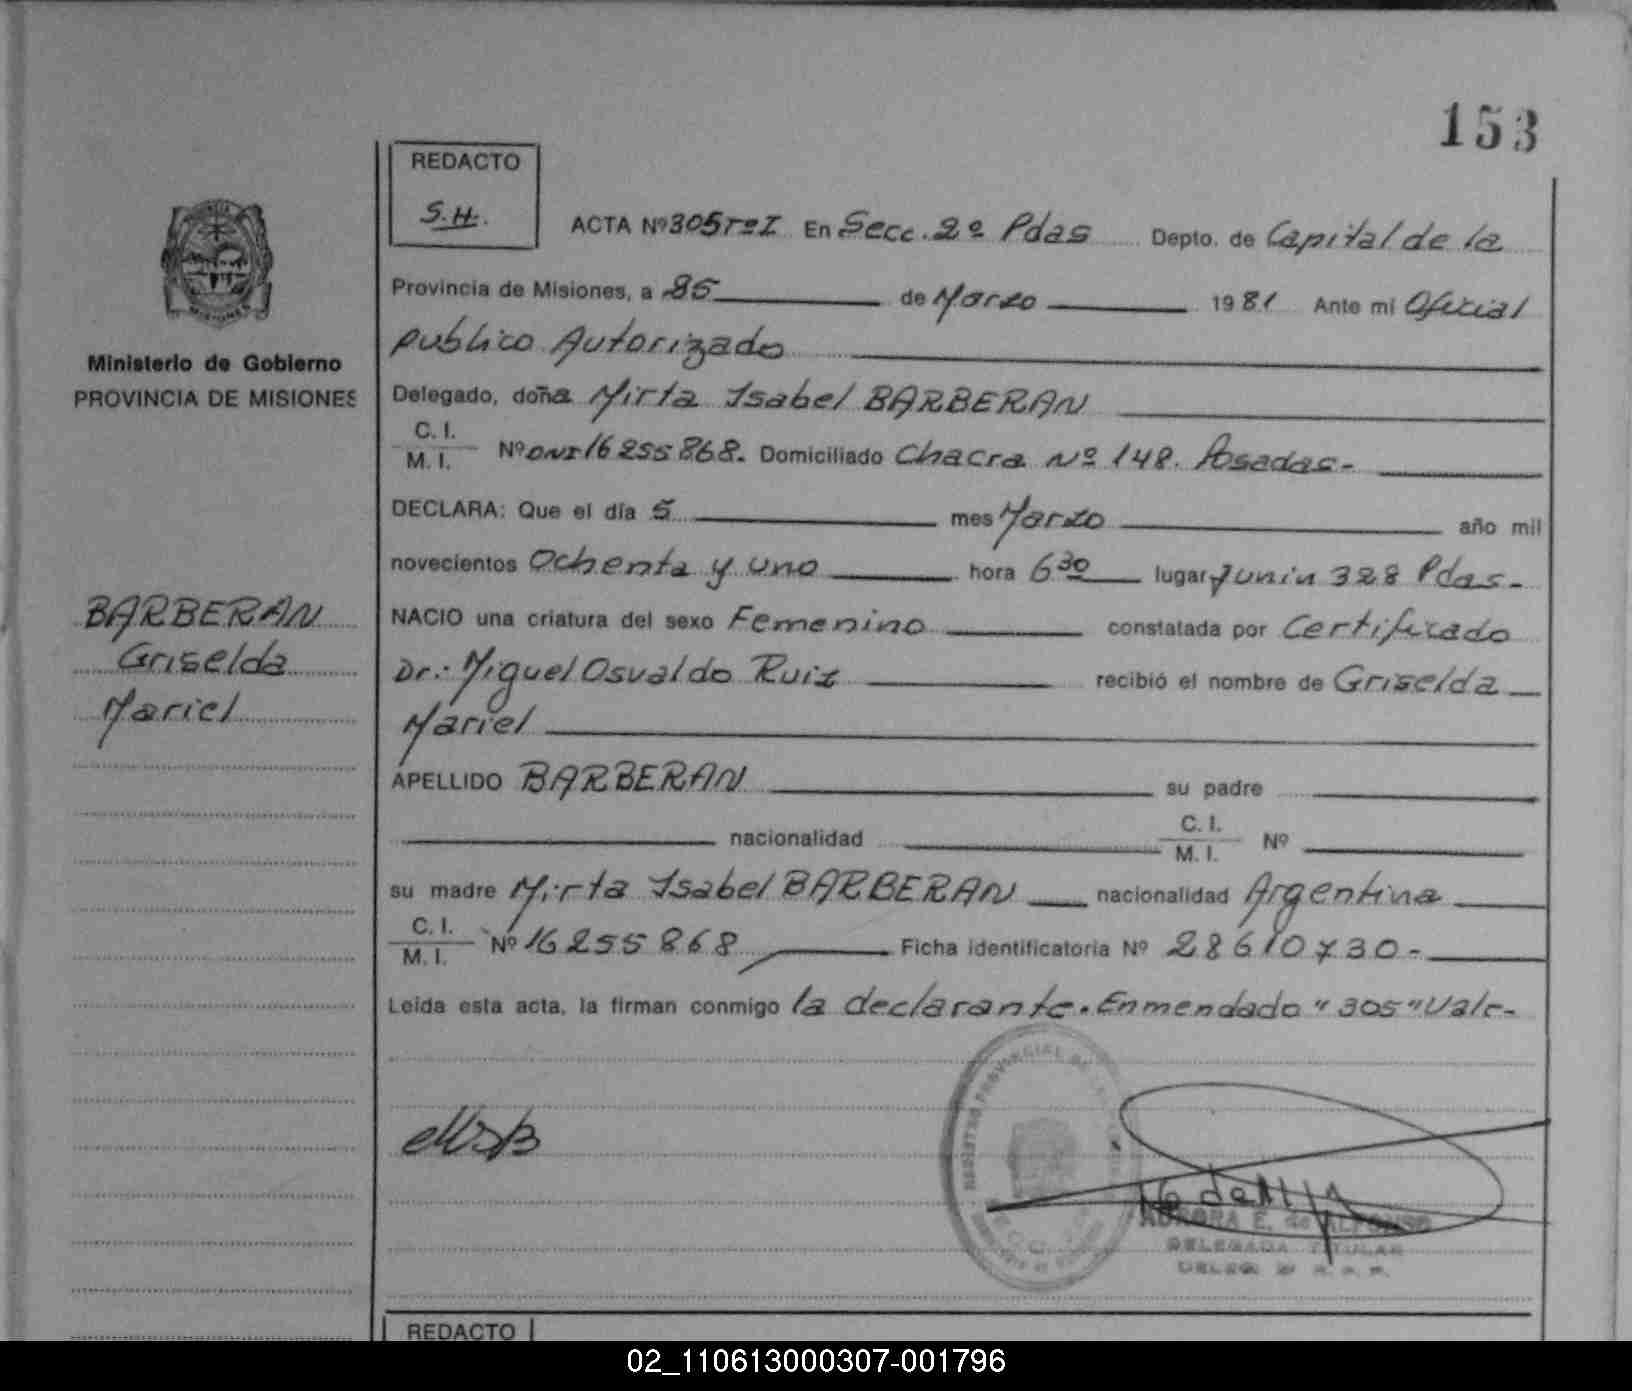 153
REDACTO
S.H.
ACTA Nº 305 Tº I En Secc. 2º Pdas Depto. de Capital de la
Provincia de Misiones, a 25 de Marzo 1981 Ante mi Oficial
publico Autorizado
Ministerio de Gobierno
PROVINCIA DE MISIONES
Delegado, doña Mirta Isabel BARBERAN
C. I.
M. I. Nº DNI 16255868. Domiciliado Chacra Nº 148. Posadas-
DECLARA: Que el día 5 mes Marzo año mil
novecientos Ochenta y uno hora 6 30 lugar Junin 328 Pdas-
BARBERAN
Griselda
Mariel
NACIO una criatura del sexo Femenino constatada por Certificado
Dr.: Miguel Osvaldo Ruiz recibió el nombre de Griselda
Mariel
APELLIDO BARBERAN su padre
nacionalidad C. I. M. I. Nº
su madre Mirta Isabel BARBERAN nacionalidad Argentina
C. I.
M. I. Nº 16255868 Ficha identificatoria Nº 28610730-
Leída esta acta, la firman conmigo la declarante. Enmendado "305" Vale-
AURORA E. de ALFONSO
DELEGADA TITULAR
REDACTO
02_110613000307-001796